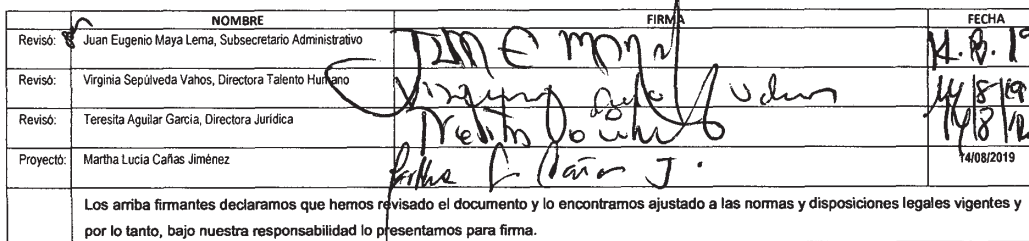 NOMBRE FIRMA FECHA
Revisó: Juan Eugenio Maya Lema, Subsecretario Administrativo
Revisó: Virginia Sepúlveda Vahos, Directora Talento Humano 14/8/19
Revisó: Teresita Aguilar Garcia, Directora Jurídica
Proyectó: Martha Lucía Cañas Jiménez 14/08/2019
Los arriba firmantes declaramos que hemos revisado el documento y lo encontramos ajustado a las normas y disposiciones legales vigentes y
por lo tanto, bajo nuestra responsabilidad lo presentamos para firma.